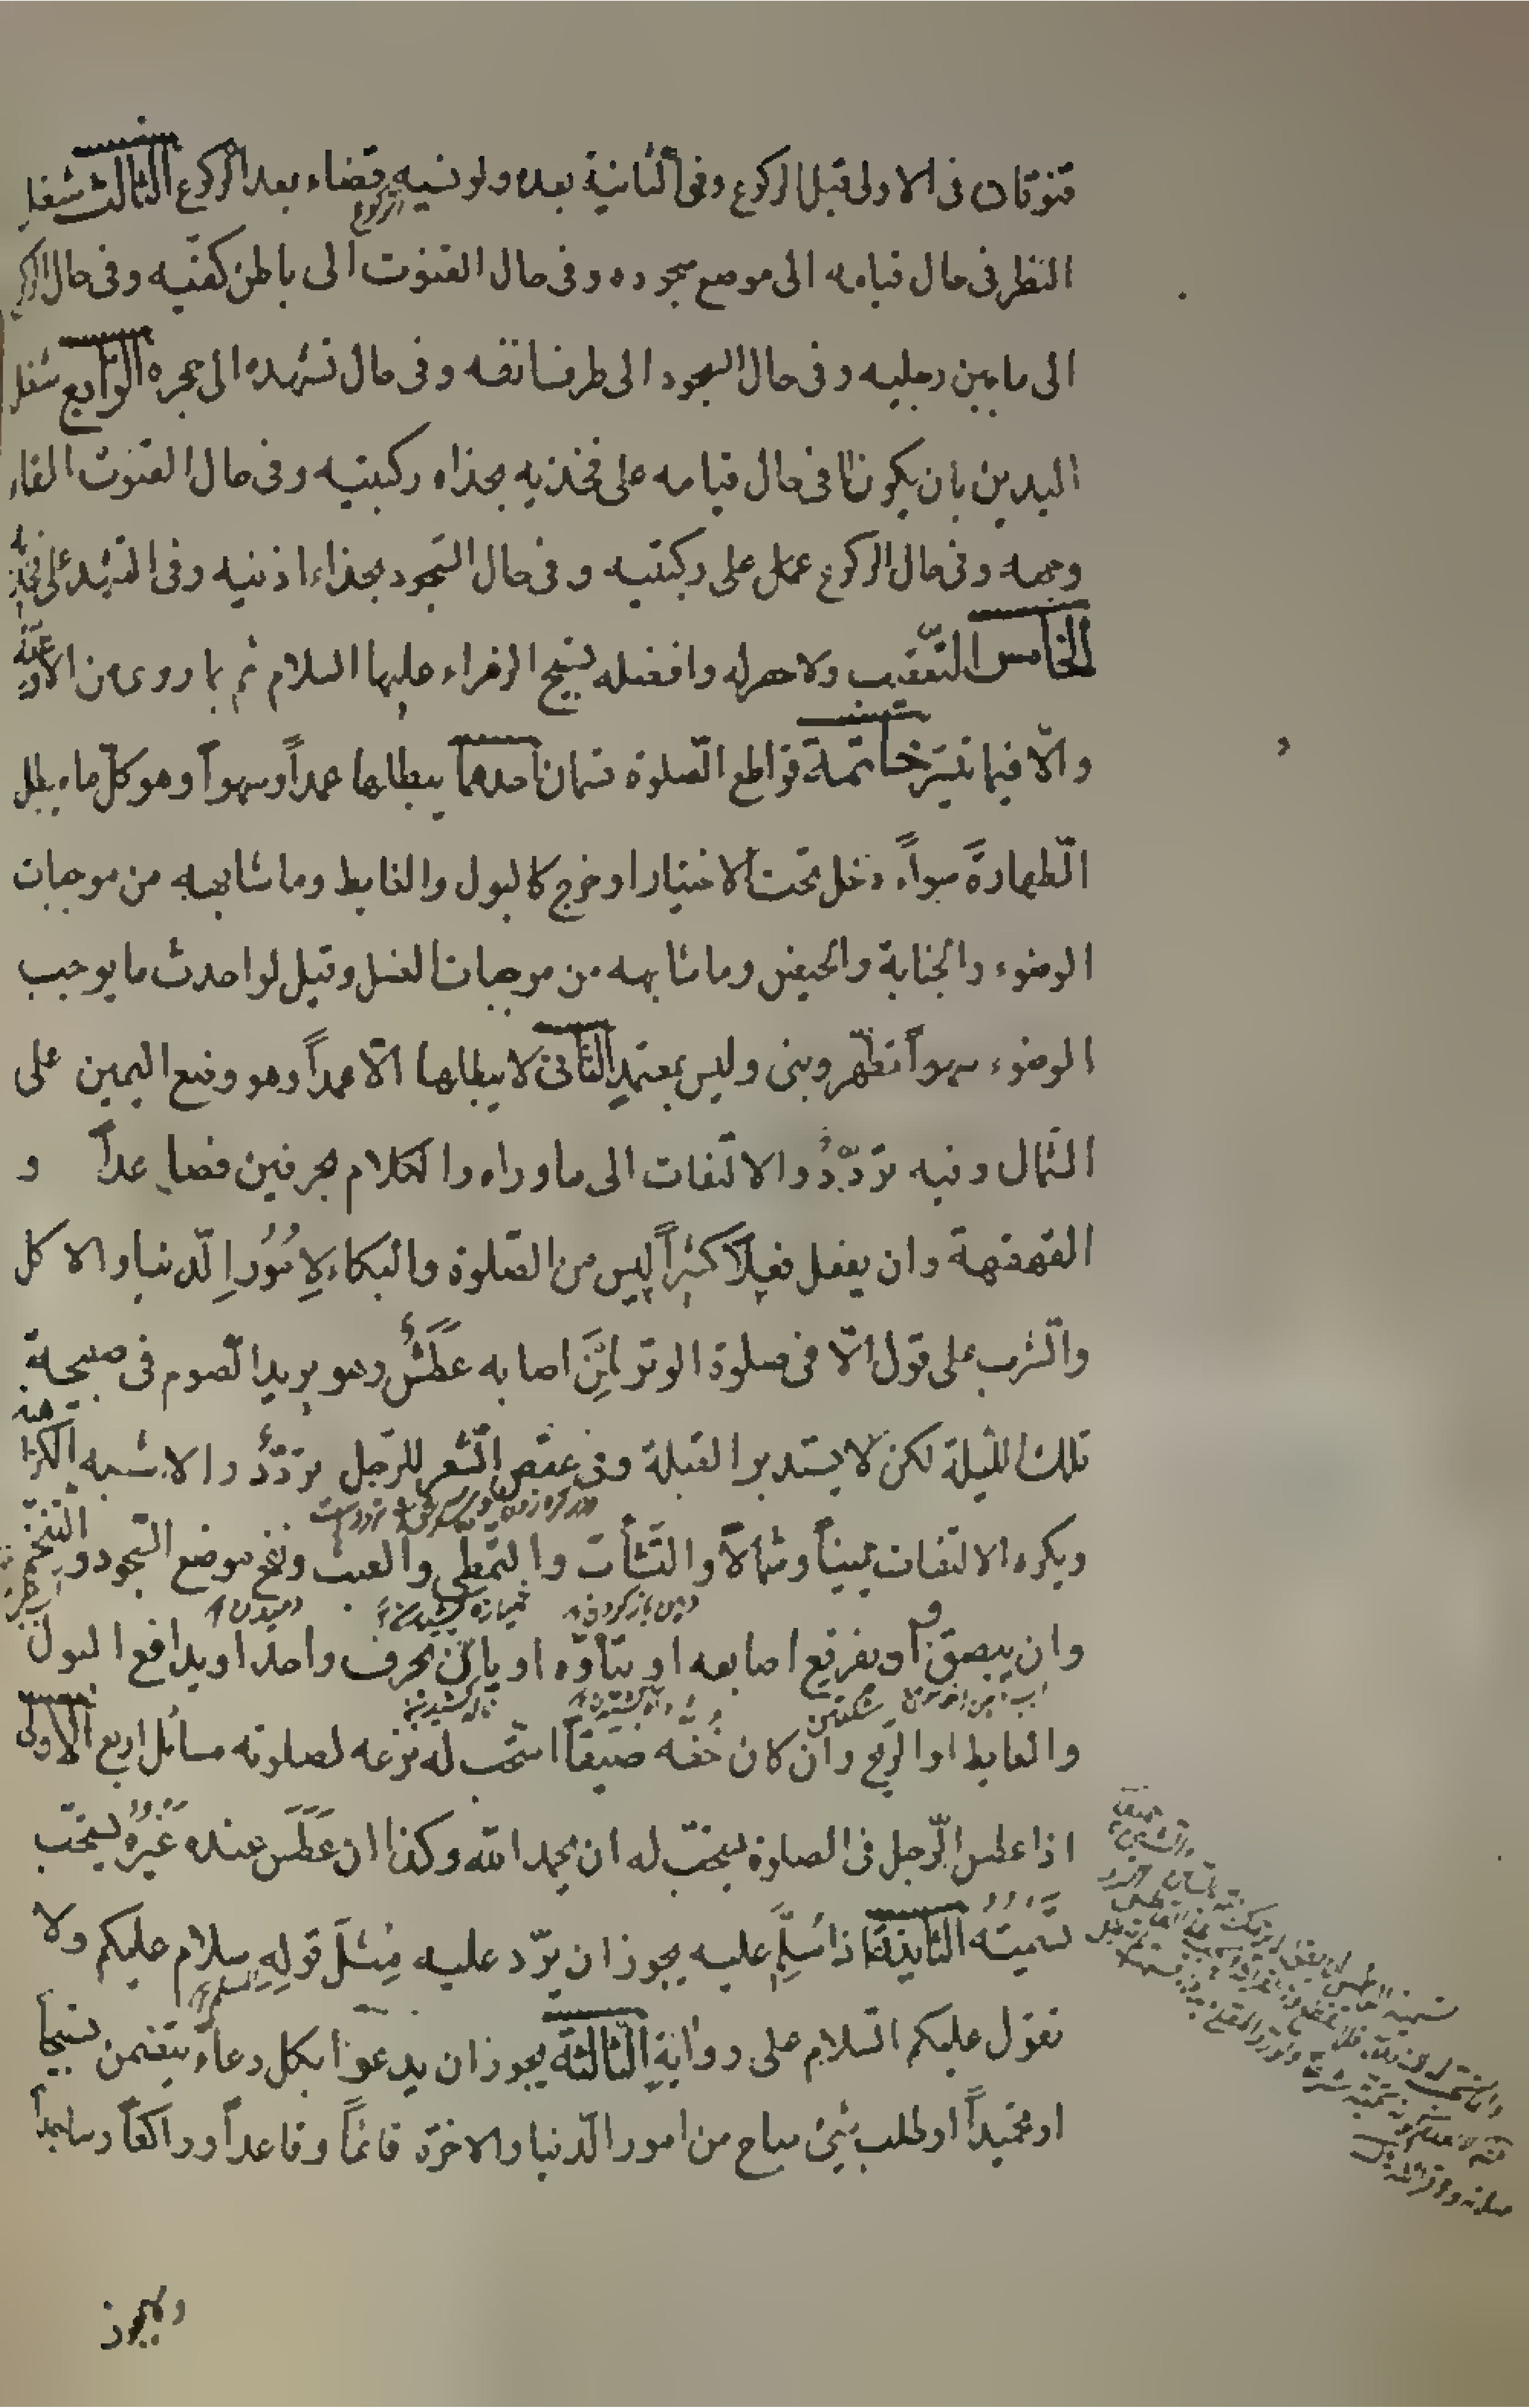 قنوتان فى الاولى قبل الركوع وفى الثانية بعده ولو نسيه قضاء بعد الركوع الثالث شغل
الركوع
النظر فى حال قيامه الى موضع سجوده وفى حال القنوت الى باطن كفيه وفى حال الركوع
الى ما بين رجليه وفى حال السجود الى طرف انفه وفى حال تشهده الى حجره الرابع شغل
اليدين بان يكونا فى حال قيامه على فخذيه بحذاء ركبتيه وفى حال القنوت تلقاء
وجهه وفى حال الركوع على ركبتيه وفى حال السجود بحذاء اذنيه وفى التشهد على فخذيه
الخامس التعقيب ولا حصر له وافضله تسبيح الزهراء عليها السلام ثم بما روى من الادعية
والّا فبما تيسّر خاتمة قواطع الصّلوة قسمان احدهما يبطلها عمداً وسهواً وهو كلّ ما يبطل
الطّهارة سواءً دخل تحت الاختيار او خرج كالبول والغايط وما شابهه من موجبات
الوضوء والجنابة والحيض وما شابهه من موجبات الغسل وقيل لو احدث ما يوجب
الوضوء سهواً تطهّر وبنى وليس بمعتمد الثانى لا يبطلها الّا عمداً وهو وضع اليمين على
الشمال وفيه تردّدٌ والالتفات الى ما وراه والكلام بحرفين فصاعداً و
القهقهة وان يفعل فعلاً كثيراً ليس من الصّلوة والبكاء لِامُورِ الدّنيا والاكل
والشّرب على قول الّا فى صلوة الوتر لِمَن اصابه عَطَشٌ وهو يريد الصّوم فى صبيحة
تلك الليلة لكن لا يستدبر القبلة وفى عقص الشّعر للرّجل تردّدٌ والاشبه الكراهة
ويكره الالتفات يميناً وشمالاً والتّثأب والتمطى والعبث ونفخ موضع السّجود والتنخّم
دهن باز كردن خميازه كشيدن دميدن
وان يبصق او يفرقع اصابعه او يتأوّه او يانّ بحرف واحد او يدافع البول
اب دهن انداختن شكستن اه كشيدن ناله كشيدن
والغايط او الرّيح وان كان خُفّه ضيّقاً استحب له نزعه لصلوته مسائل اربع الاولى
اذا عطس الرّجل فى الصلوة يستحبّ له ان يحمد الله وكذا ان عَطَسَ عنده غَيرُه يستحبّ
تسميتُه الثانية اذا سُلِّم عليه يجوز ان يردّ عليه مِثلَ قولِه سلام عليكم ولا
تقول عليكم السّلام على روايةٍ الثالثة يجوز ان يدعوا بكل دعاء يتضمن تسبيحاً
او تحميداً او طلب شئ مباح من امور الدّنيا والاخرة قائماً وقاعداً وراكعاً وساجداً
ويجوز